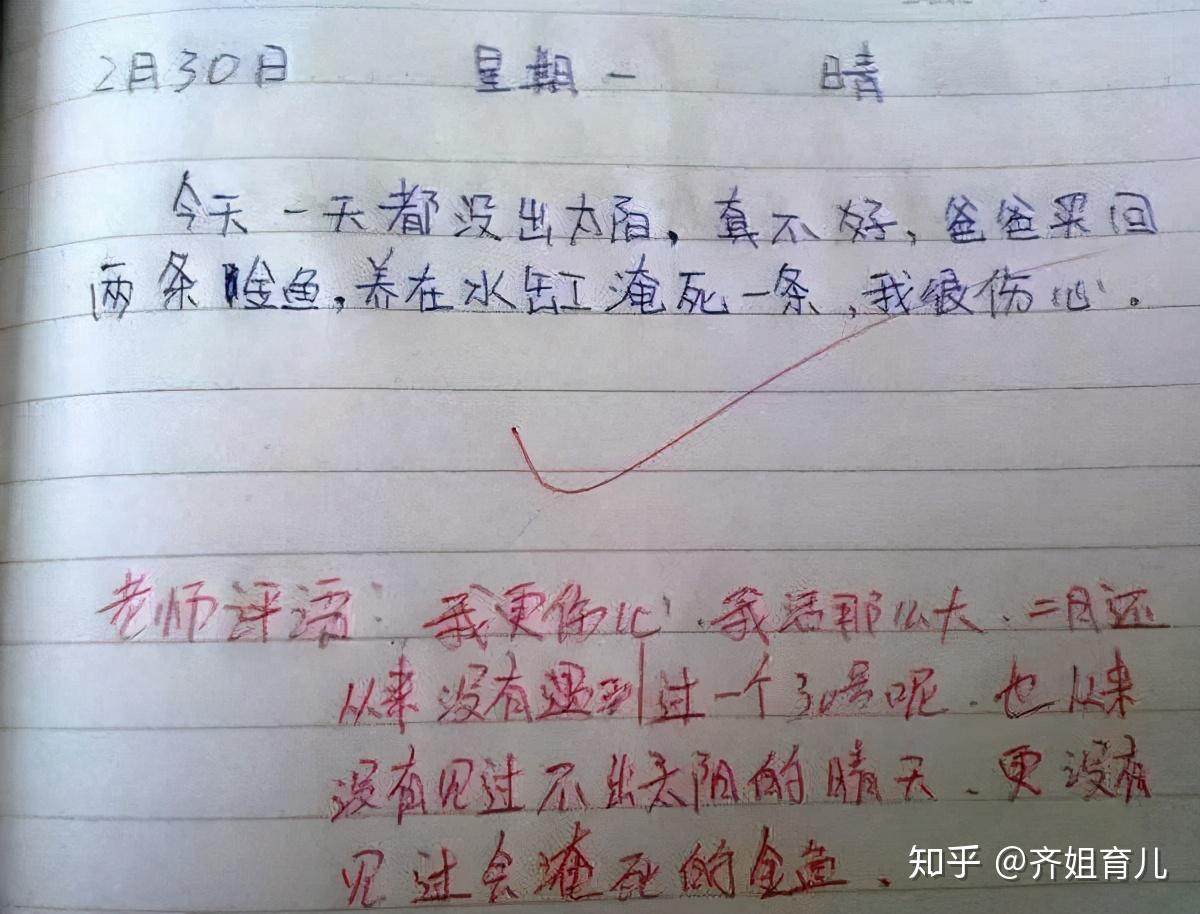 2月30日 星期一 晴
今天一天都没出太阳,真不好,爸爸买回
两条金鱼,养在水缸淹死一条,我很伤心。
老师评语:我更伤心.我活那么大.二月还
从来没有遇到过一个30号呢.也从来
没有见过不出太阳的晴天.更没有
见过会淹死的金鱼.
知乎 @齐姐育儿